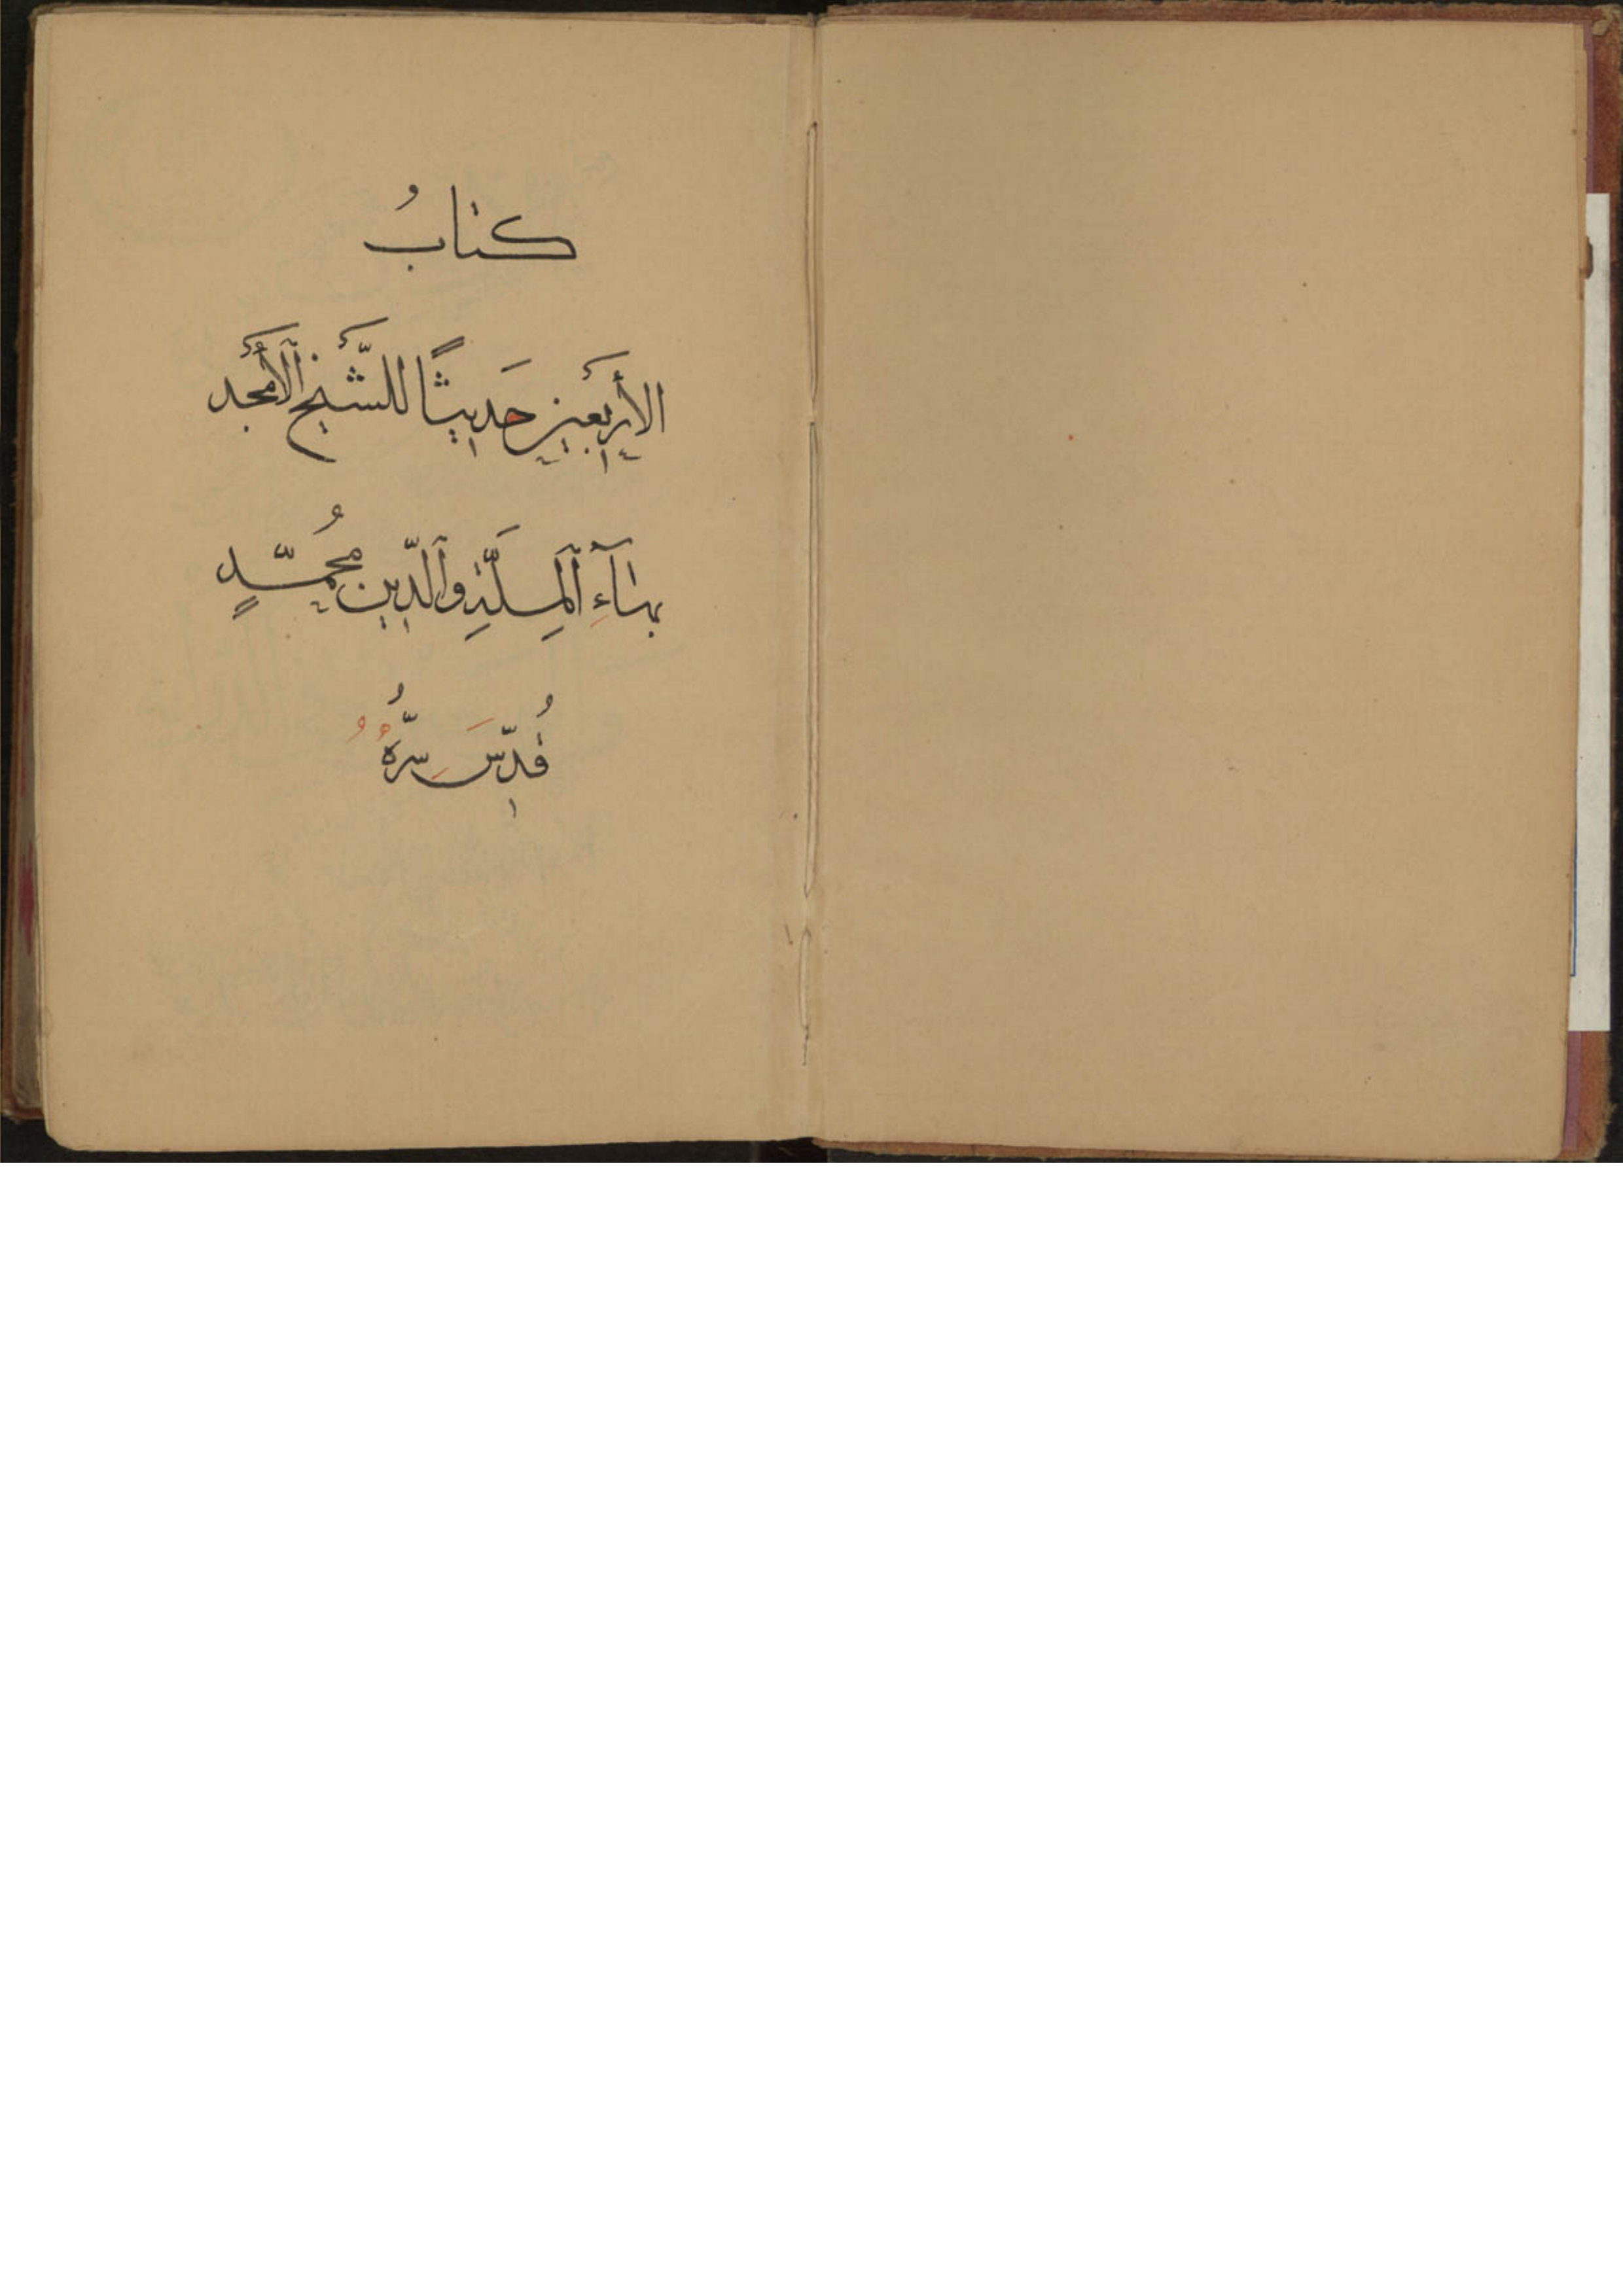 كتابُ
الأربَعين حَديثًا للشَّيخ الأمجَد
بهآءِ ٱلمِلَّةِ وٱلدّين مُحمّدٍ
قُدّسَ سِرّهُ